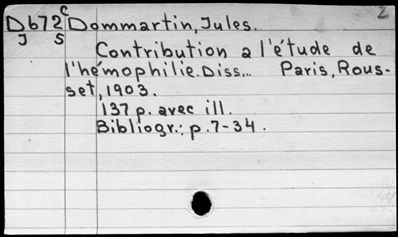 2
Db72c Dommartin, Jules.
J S
Contribution a l'étude de
l'hémophilie. Diss... Paris, Rous-
set, 1903.
137 p. avec ill.
Bibliogr.: p. 7-34.